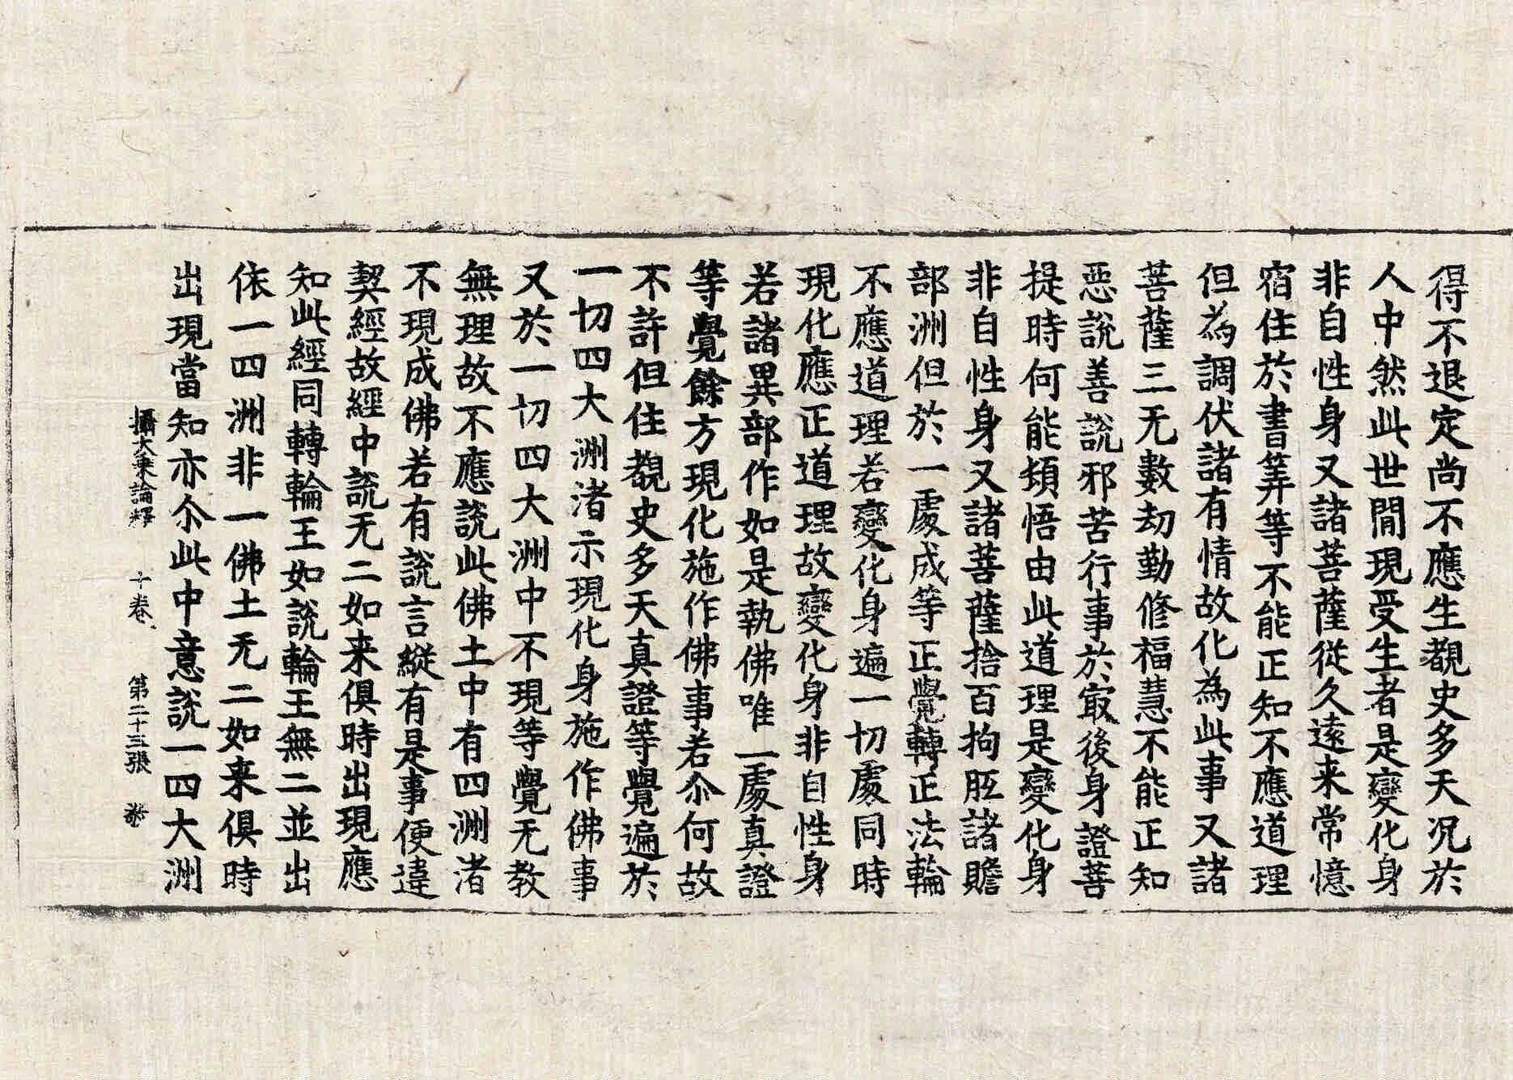 得不退定尚不應生覩史多天况於
人中然此世閒現受生者是變化身
非自性身又諸菩薩從久遠来常憶
宿住於書筭等不能正知不應道理
但為調伏諸有情故化為此事又諸
菩薩三无數劫勤修福慧不能正知
惡說善說邪苦行事於㝡後身證菩
提時何能頓悟由此道理是變化身
非自性身又諸菩薩捨百拘胝諸贍
部洲但於一處成等正覺轉正法輪
不應道理若變化身遍一切處同時
現化應正道理故變化身非自性身
若諸異部作如是執佛唯一處真證
等覺餘方現化施作佛事若尒何故
不許但住覩史多天真證等覺遍於
一切四大洲渚示現化身施作佛事
又於一切四大洲中不現等覺无教
無理故不應說此佛土中有四洲渚
不現成佛若有說言縱有是事便違
契經故經中說无二如来俱時出現應
知此經同轉輪王如說輪王無二並出
依一四洲非一佛土无二如来俱時
出現當知亦尒此中意說一四大洲
攝大乘論釋 十卷 第二十三張